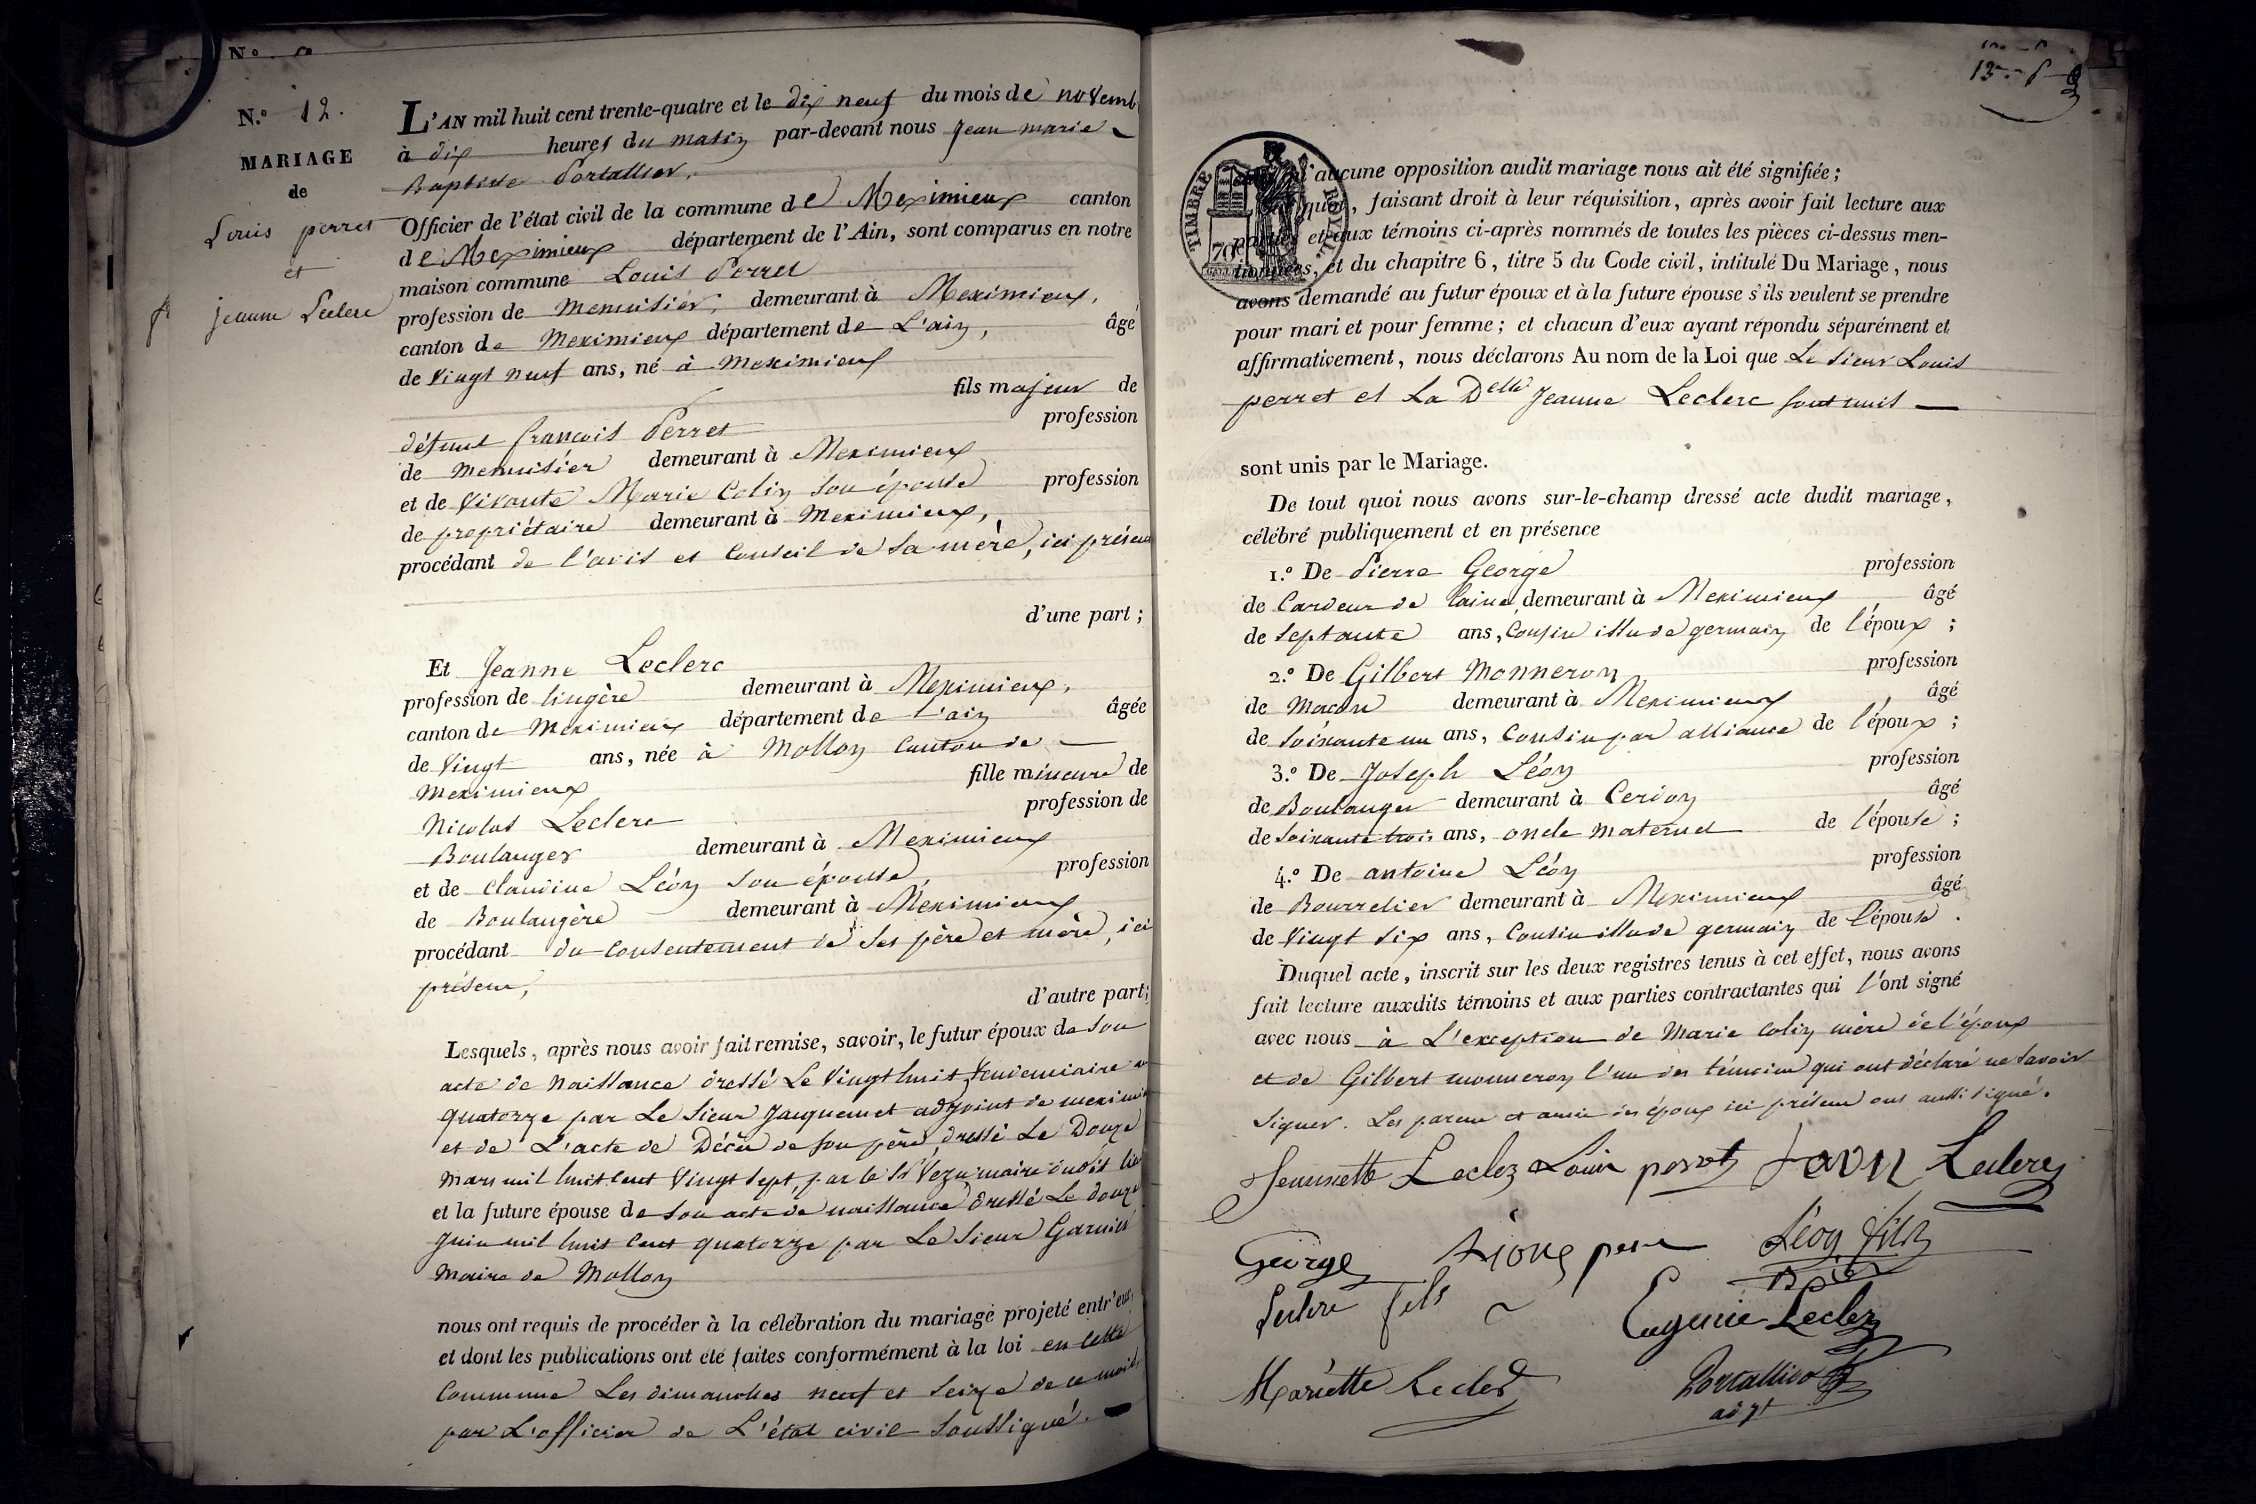 N.º
N.º 12.
MARIAGE
de
Louis perret
et
jeanne Leclerc
L'AN mil huit cent trente-quatre et le dix neuf du mois de novemb
à dix heures du matin par-devant nous Jean marie
Baptiste Portallier.
Officier de l'état civil de la commune de Meximieux canton
de Meximieux département de l'Ain, sont comparus en notre
maison commune Louis Perret
profession de menuisier, demeurant à Meximieux,
canton de Meximieux département de L'ain, âgé
de vingt neuf ans, né à Meximieux
fils majeur de
défunt françois Perret profession
de menuisier demeurant à Meximieux
et de vivante Marie Colin son épouse profession
de propriétaire demeurant à Meximieux,
procédant de l'avis et Conseil de sa mère, ici présen
d'une part ;
Et Jeanne Leclerc
profession de lingère demeurant à Meximieux,
canton de Meximieux département de L'ain âgée
de vingt ans, née à Mollon Canton de
Meximieux fille mineure de
Nicolas Leclerc profession de
Boulanger demeurant à Meximieux
et de Claudine Léon son épouse, profession
de Boulangère demeurant à Meximieux
procédant du consentement de ses père et mère, ici
présens, d'autre part;
Lesquels, après nous avoir fait remise, savoir, le futur époux de son
acte de naissance dressé Le Vingt huit Vendemiaire
quatorze par Le Sieur Jacquemet adjoint de mexim
et de L'acte de Décès de son père, dressé Le Douze
mars mil huit cent Vingt sept, par le Sr maire dudit lieu
et la future épouse de son acte de naissance dressé Le douze
Juin mil huit cent quatorze par Le Sieur Garnier
maire de Mollon
nous ont requis de procéder à la célébration du mariage projeté entr'eux,
et dont les publications ont été faites conformément à la loi en cette
Commune Les dimanches neuf et seize de ce mois,
par L'officier de L'état civil soussigné.
TIMBRE ROYAL
70c
aucune opposition audit mariage nous ait été signifiée ;
quoi, faisant droit à leur réquisition, après avoir fait lecture aux
parties et aux témoins ci-après nommés de toutes les pièces ci-dessus men-
tionnées, et du chapitre 6, titre 5 du Code civil, intitulé Du Mariage, nous
avons demandé au futur époux et à la future épouse s'ils veulent se prendre
pour mari et pour femme ; et chacun d'eux ayant répondu séparément et
affirmativement, nous déclarons Au nom de la Loi que Le sieur Louis
perret et La Delle Jeanne Leclerc sont unis
sont unis par le Mariage.
De tout quoi nous avons sur-le-champ dressé acte dudit mariage,
célébré publiquement et en présence
1.º De Pierre George profession
de Cardeur de laine, demeurant à Meximieux âgé
de septante ans, Cousin issu de germain de l'époux ;
2.º De Gilbert Monneron profession
de macon demeurant à Meximieux âgé
de soixante un ans, Cousin par alliance de l'époux ;
3.º De Joseph Léon profession
de Boulanger demeurant à Cerdon âgé
de soixante trois ans, oncle maternel de l'épouse ;
4.º De antoine Léon profession
de Bourrelier demeurant à Meximieux âgé
de vingt six ans, Cousin issu de germain de l'épouse.
Duquel acte, inscrit sur les deux registres tenus à cet effet, nous avons
fait lecture auxdits témoins et aux parties contractantes qui l'ont signé
avec nous à L'exception de Marie Colin mère de l'époux
et de Gilbert monneron l'un des témoins qui ont déclaré ne savoir
signer. Les parens et amis des époux ici présens ont aussi signé.
Jeunnette Leclez Louis peret Jean Leclerc
George Lions pere Léon fils
fils Eugenie Leclez
Mariette Lecler Portallier
adjt